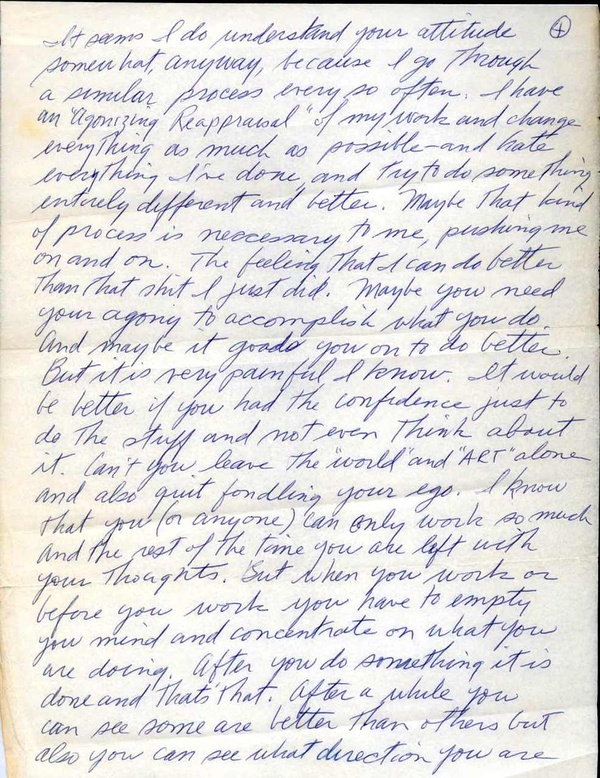 It seems I do understand your attitude
4
somewhat, anyway, because I go through
a similar process every so often. I have
an "Agonizing Reappraisal" of my work and change
everything as much as possible—and hate
everything I've done, and try to do something
entirely different and better. Maybe that kind
of process is neccessary to me, pushing me
on and on. The feeling that I can do better
than that shit I just did. Maybe you need
your agony to accomplish what you do.
And maybe it goads you on to do better.
But it is very painful I know. It would
be better if you had the confidence just to
do the stuff and not even think about
it. Can't you leave the "world" and "ART" alone
and also quit fondling your ego. I know
that you (or anyone) can only work so much
and the rest of the time you are left with
your thoughts. But when you work or
before you work you have to empty
you mind and concentrate on what you
are doing. After you do something it is
done and that's that. After a while you
can see some are better than others but
also you can see what direction you are